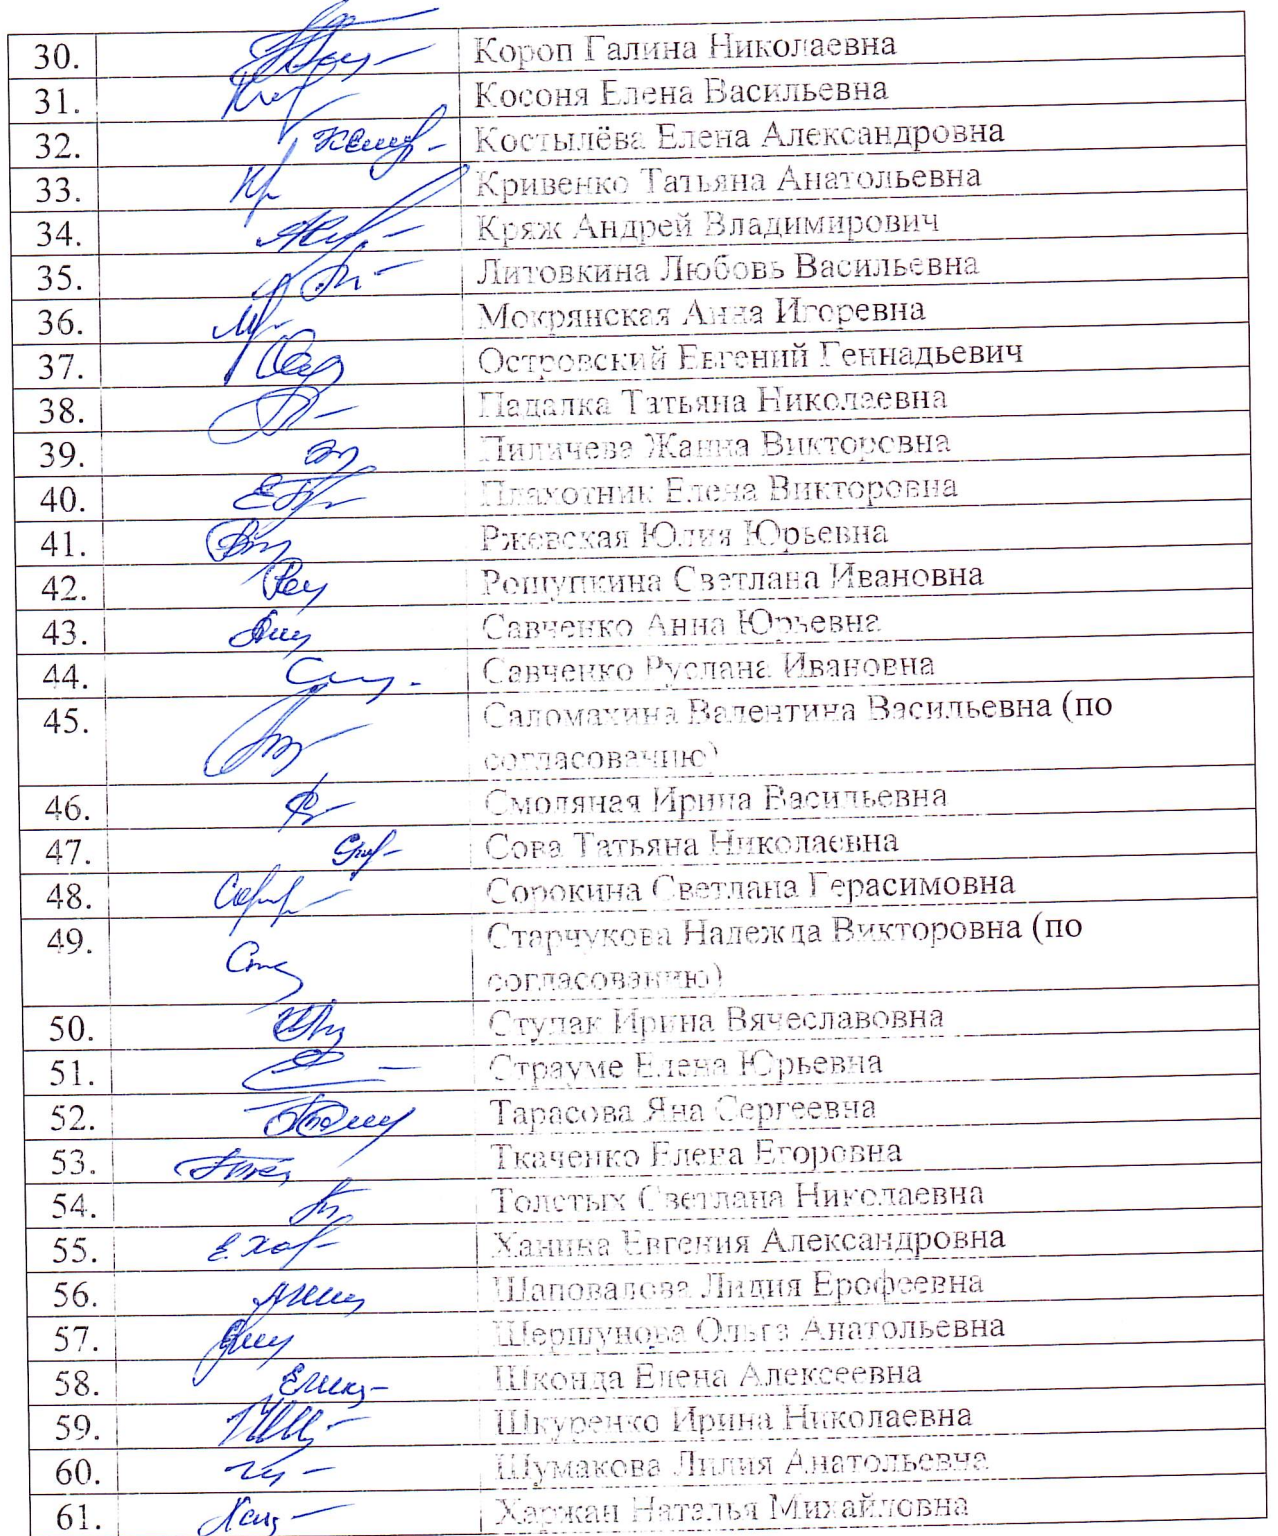 30. Короп Галина Николаевна
31. Косоня Елена Васильевна
32. Костылёва Елена Александровна
33. Кривенко Татьяна Анатольевна
34. Кряж Андрей Владимирович
35. Литовкина Любовь Васильевна
36. Мокрянская Анна Игоревна
37. Островский Евгений Геннадьевич
38. Падалка Татьяна Николаевна
39. Пиличева Жанна Викторовна
40. Плахотник Елена Викторовна
41. Ржевская Юлия Юрьевна
42. Рощупкина Светлана Ивановна
43. Савченко Анна Юрьевна
44. Савченко Руслана Ивановна
45. Саломахина Валентина Васильевна (по
согласованию)
46. Смоляная Ирина Васильевна
47. Сова Татьяна Николаевна
48. Сорокина Светлана Герасимовна
49. Старчукова Надежда Викторовна (по
согласованию)
50. Ступак Ирина Вячеславовна
51. Страуме Елена Юрьевна
52. Тарасова Яна Сергеевна
53. Ткаченко Елена Егоровна
54. Толстых Светлана Николаевна
55. Ханина Евгения Александровна
56. Шаповалова Лидия Ерофеевна
57. Шершунова Ольга Анатольевна
58. Шконда Елена Алексеевна
59. Шкуренко Ирина Николаевна
60. Шумакова Лилия Анатольевна
61. Харжан Наталья Михайловна